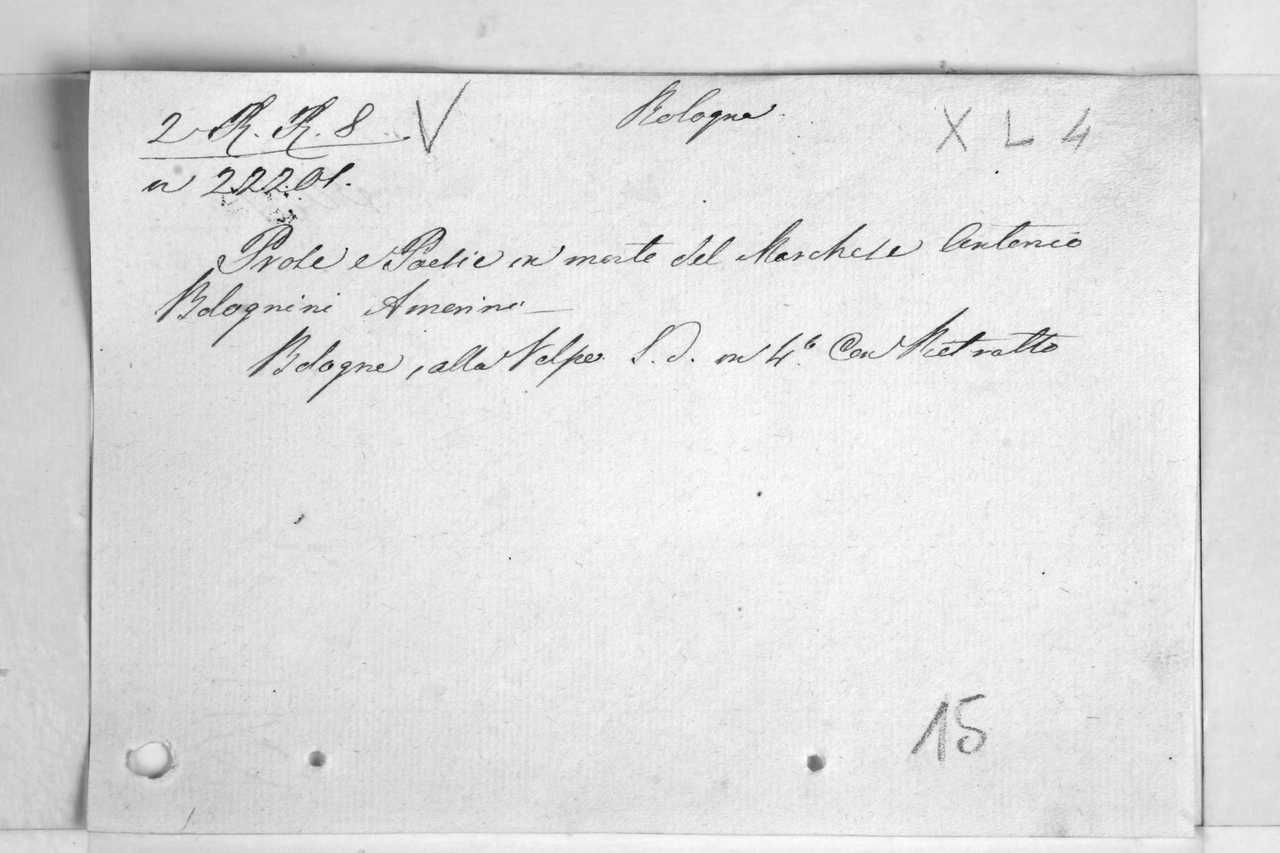 2 R. R. 8 V Bologna X L 4
n 22201.
Prose e Poesie in morte del Marchese Antonio
Bolognini Amorini
Bologna, alla Volpe S. d. in 4.º Con Ritratto
15